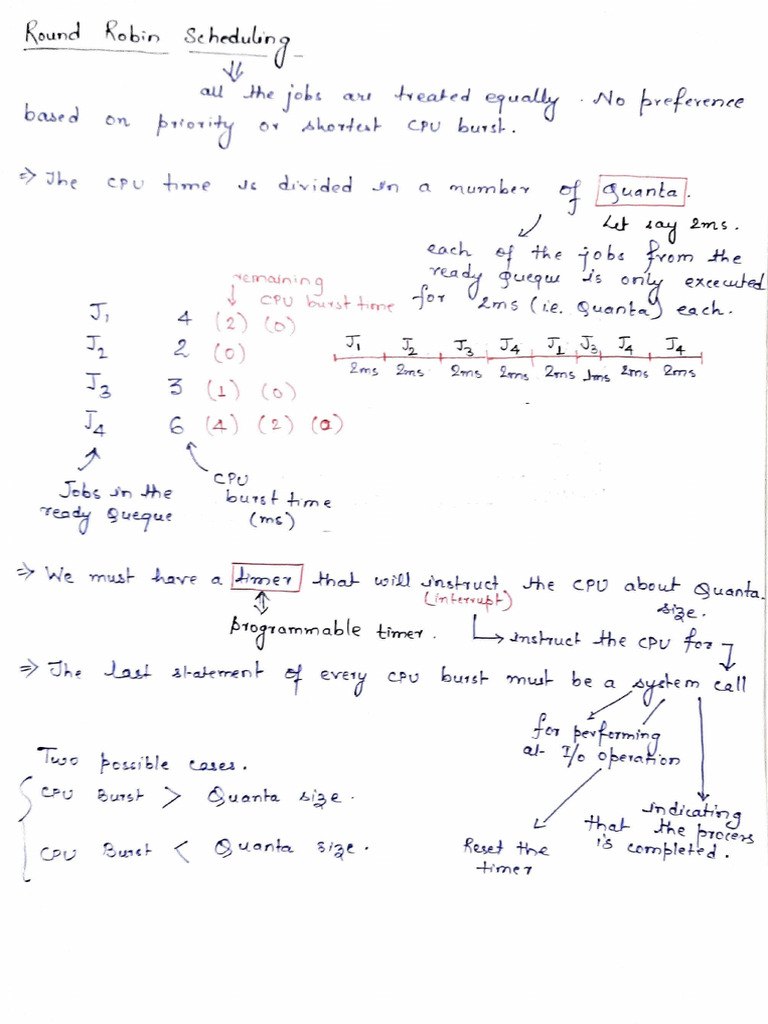 Round Robin Scheduling
all the jobs are treated equally. No preference
based on priority or shortest CPU burst.
⇒ The CPU time is divided in a number of Quanta.
Let say 2ms.
each of the jobs from the
ready Queque is only executed
for 2ms (i.e. Quanta) each.
remaining
CPU burst time
J1 4 (2) (0)
J2 2 (0)
J3 3 (1) (0)
J4 6 (4) (2) (0)
J1 J2 J3 J4 J1 J3 J4 J4
2ms 2ms 2ms 2ms 2ms 1ms 2ms 2ms
Jobs in the
ready Queque
CPU
burst time
(ms)
⇒ We must have a timer that will instruct the CPU about Quanta
(interrupt) size.
programmable timer. instruct the CPU for
⇒ The last statement of every CPU burst must be a system call
for performing
I/o operation
Two possible cases.
CPU Burst > Quanta size.
CPU Burst < Quanta size.
Reset the
timer
indicating
that the process
is completed.